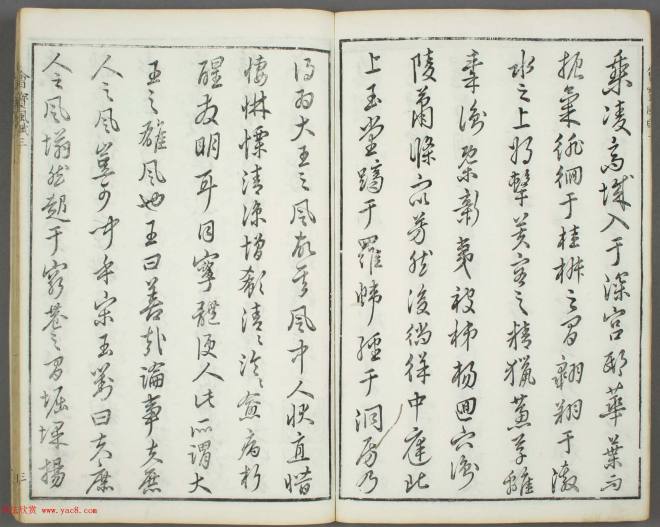 乘凌高城入于深宮邸華葉而
振氣徘徊于桂椒之間翱翔于激
水之上將擊芙容之精獵蕙草離
秦衡概新夷被荑楊迴穴衝
陵蕭條眾芳然後徜徉中庭北
上玉堂躋于羅帷經于洞房乃
得為大王之風故其風中人狀直憯
悽惏慄清涼增欷清〻泠〻愈病析
酲發明耳目寧體便人此所謂大
王之雄風也王曰善哉論事夫庶
人之風豈可聞乎宋玉對曰夫庶
人之風塕然起于窮巷之間堀堁揚
三
書法欣賞 www.yac8.com